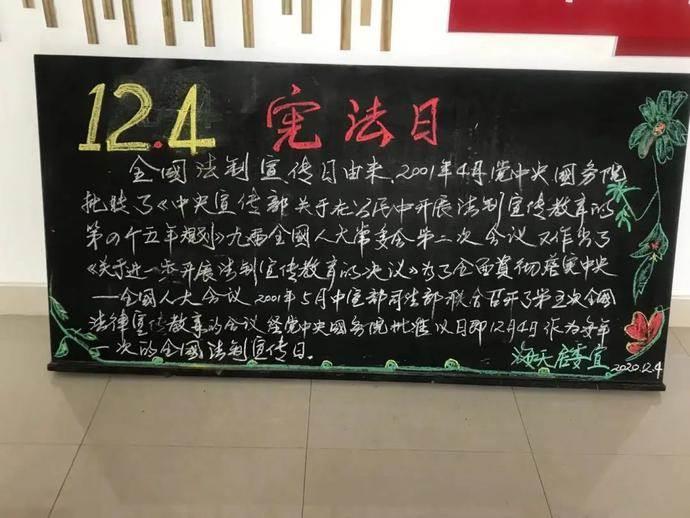 12.4 宪法日
全國法制宣传日由来，2001年4月党中央國务院
批转了《中央宣传部关于在公民中开展法制宣传教育的
第四个五年规划》九届全國人大常委会第二次会议又作出了
《关于进一步开展法制宣传教育的决议》为了全面貫彻落实中央
一全國人大会议2001年5月中宣部司法部联合召开了第五次全國
法律宣传教育的会议经党中央國务院批准议日即12月4日作为每年
一次的全國法制宣传日.
海天居委宣
2020.12.4